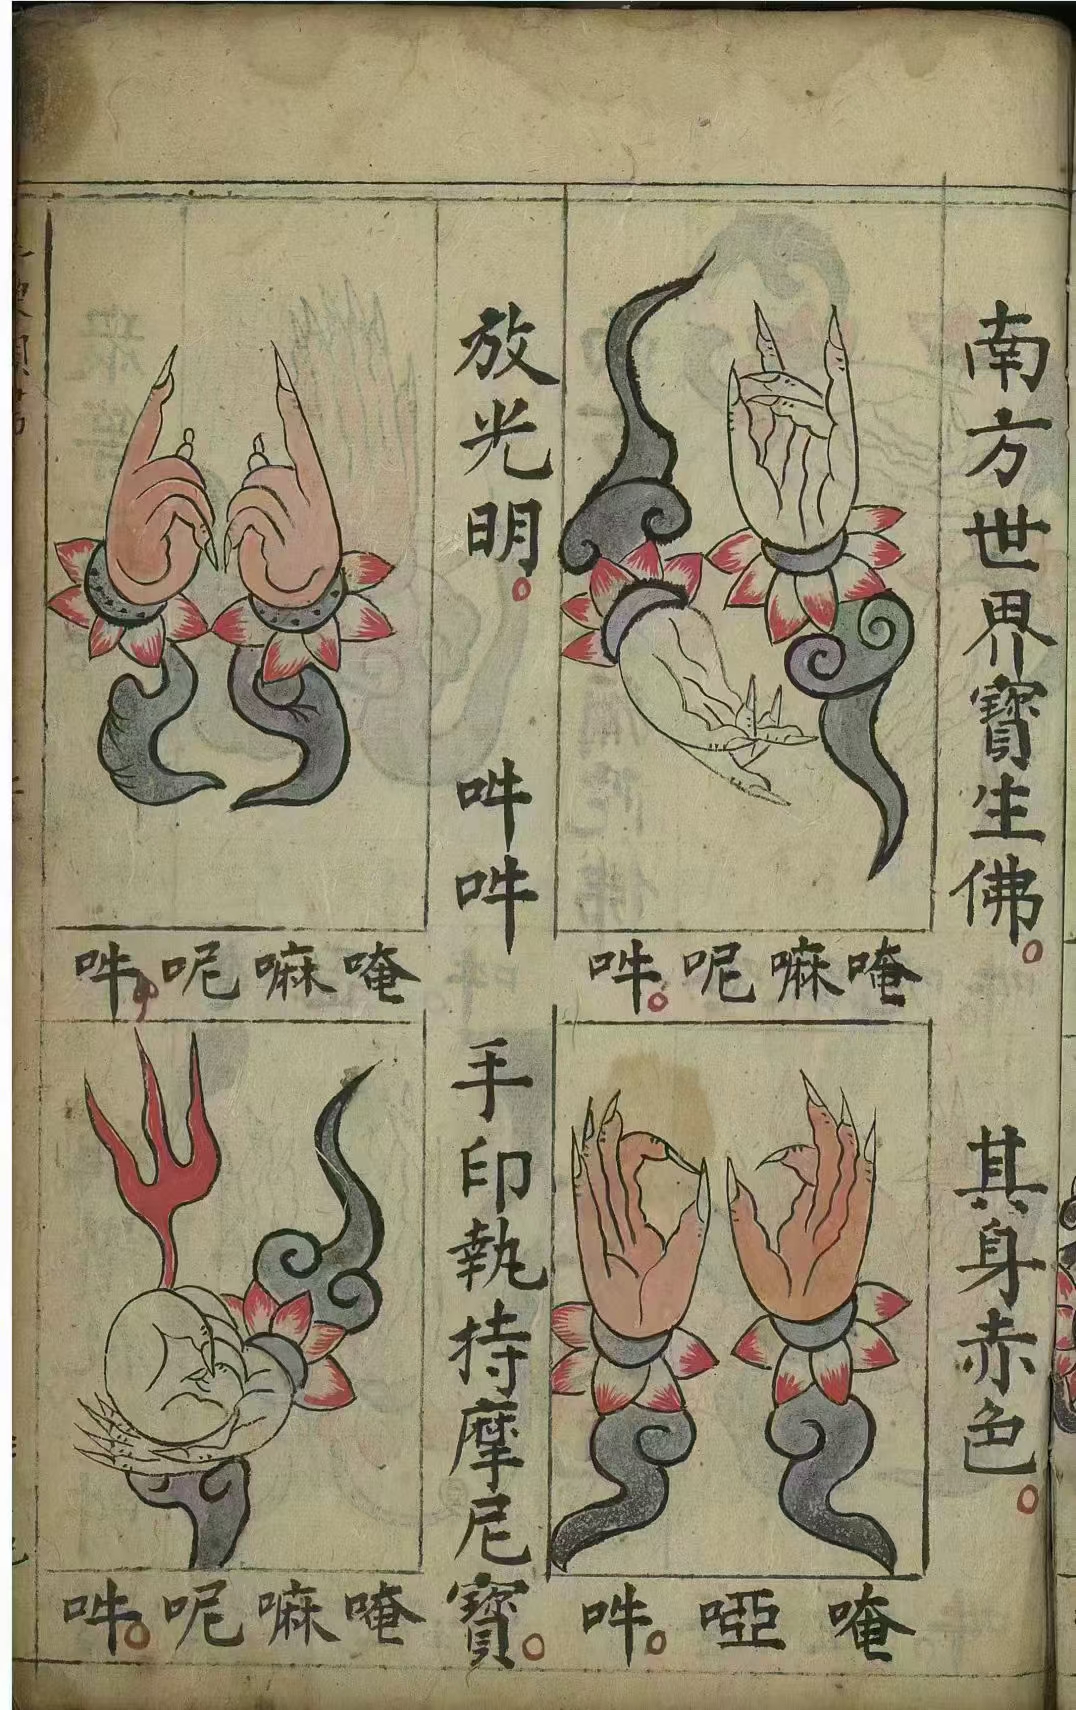 南方世界寶生佛。
其身赤色。
唵嘛呢吽。
唵啞吽。
放光明。
吽吽
手印執持摩尼寶。
唵嘛呢吽。
唵嘛呢吽。